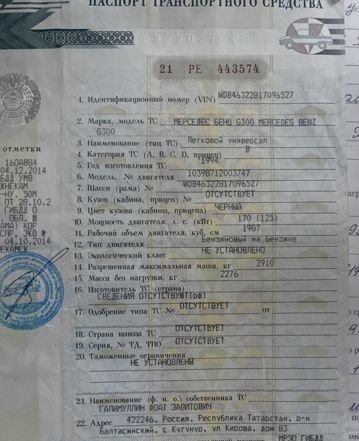 ПАСПОРТ ТРАНСПОРТНОГО СРЕДСТВА
21 РЕ 443574
1. Идентификационный номер (VIN) WDB46322817096527
2. Марка, модель ТС МЕРСЕДЕС БЕНЦ G300 MERCEDES BENZ
G300
3. Наименование (тип ТС) Легковой универсал
4. Категория ТС (А, В, С, D, прицеп) В
5. Год изготовления ТС 1994
6. Модель, № двигателя 10398712003747
7. Шасси (рама) № WDB46322817096527
8. Кузов (кабина, прицеп) № ОТСУТСТВУЕТ
9. Цвет кузова (кабины, прицепа) ЧЕРНЫЙ
10. Мощность двигателя, л. с. (кВт) 170 (125)
11. Рабочий объем двигателя, куб. см 1907
12. Тип двигателя Бензиновый на Бензине
13. Экологический класс НЕ УСТАНОВЛЕНО
14. Разрешенная максимальная масса, кг 2910
15. Масса без нагрузки, кг 2276
16. Изготовитель ТС (страна)
СВЕДЕНИЯ ОТСУТСТВУЮТ
17. Одобрение типа ТС № ОТСУТСТВУЕТ от
18. Страна вывоза ТС ОТСУТСТВУЕТ
19. Серия, № ТД, ТПО ОТСУТСТВУЕТ
20. Таможенные ограничения
НЕ УСТАНОВЛЕНЫ
21. Наименование (ф. и. о.) собственника ТС
ГАЛИМУЛЛИН ФОАТ ЗАВИТОВИЧ
22. Адрес 422246, Россия, Республика Татарстан, р-н
Балтасинский, с Кугунур, ул Кирова, дом 83
МРЭО ГИБДД
отметки
16ОА884
04.12.2014
НУ, 50М
ОТ 28.10.2
ГИБДД О
04.10.2014